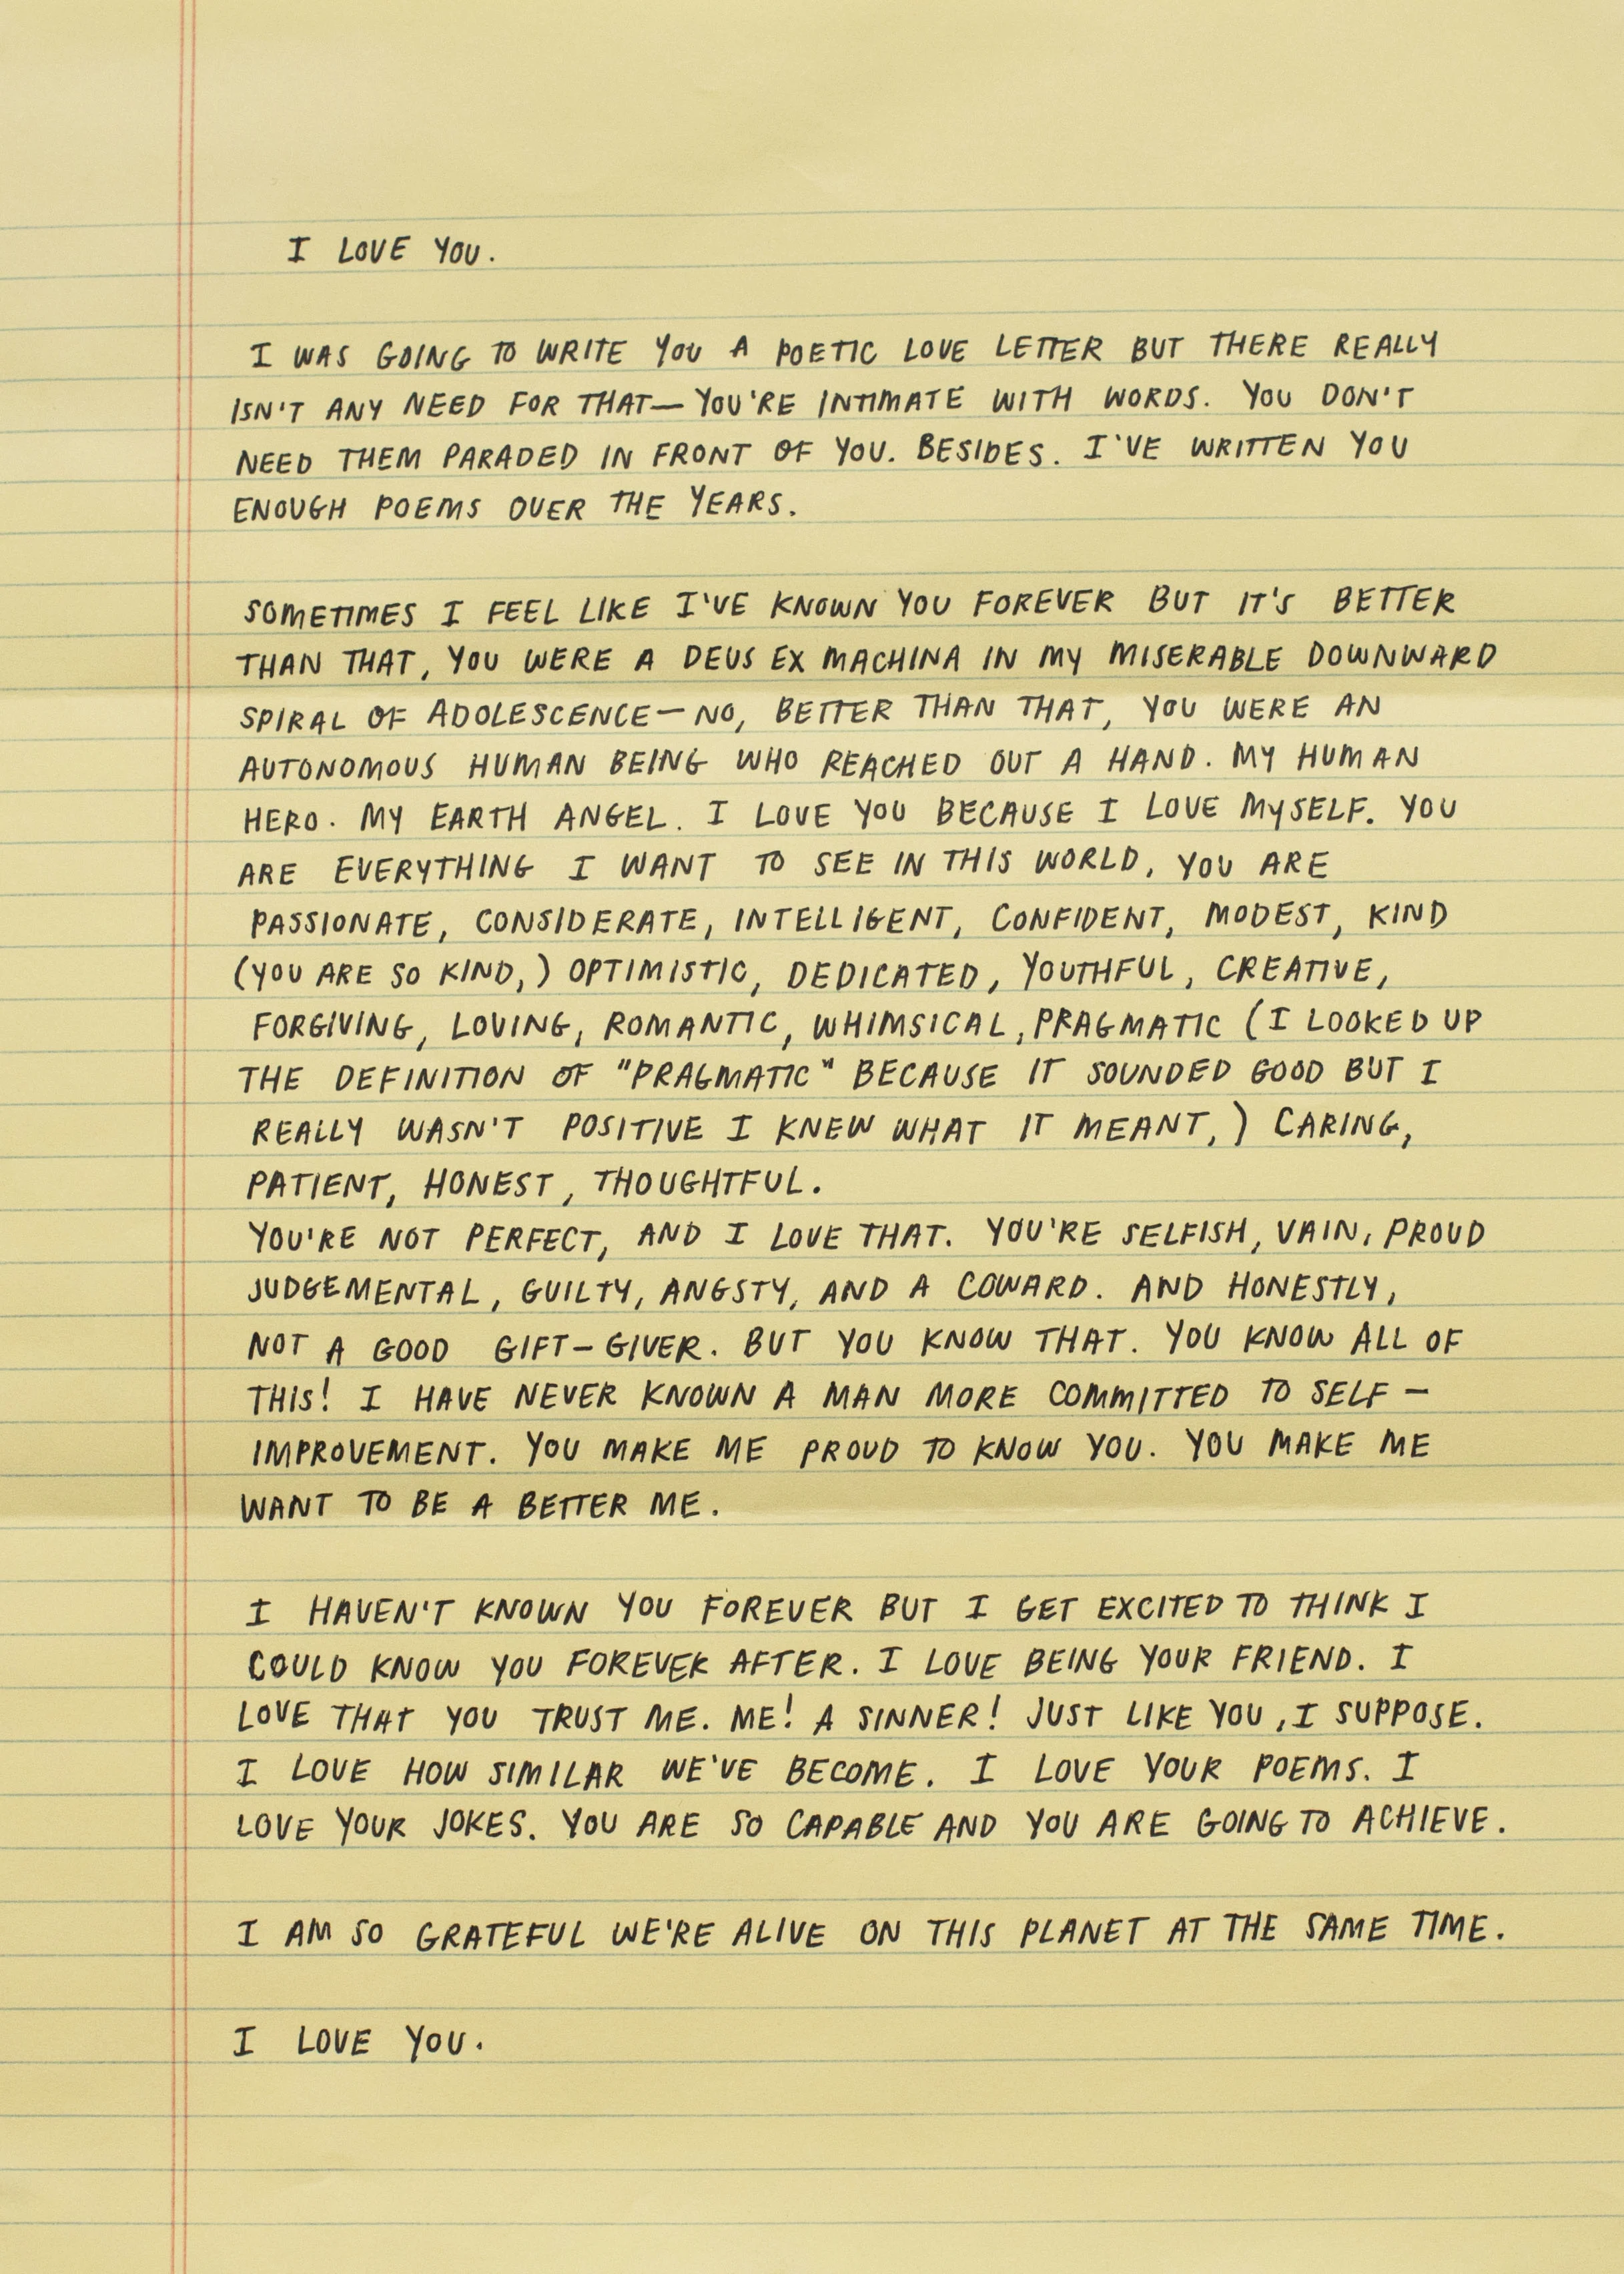 I LOVE YOU.
I WAS GOING TO WRITE YOU A POETIC LOVE LETTER BUT THERE REALLY
ISN'T ANY NEED FOR THAT— YOU'RE INTIMATE WITH WORDS. YOU DON'T
NEED THEM PARADED IN FRONT OF YOU. BESIDES. I'VE WRITTEN YOU
ENOUGH POEMS OVER THE YEARS.
SOMETIMES I FEEL LIKE I'VE KNOWN YOU FOREVER BUT IT'S BETTER
THAN THAT, YOU WERE A DEUS EX MACHINA IN MY MISERABLE DOWNWARD
SPIRAL OF ADOLESCENCE — NO, BETTER THAN THAT, YOU WERE AN
AUTONOMOUS HUMAN BEING WHO REACHED OUT A HAND. MY HUMAN
HERO. MY EARTH ANGEL. I LOVE YOU BECAUSE I LOVE MYSELF. YOU
ARE EVERYTHING I WANT TO SEE IN THIS WORLD, YOU ARE
PASSIONATE, CONSIDERATE, INTELLIGENT, CONFIDENT, MODEST, KIND
(YOU ARE SO KIND,) OPTIMISTIC, DEDICATED, YOUTHFUL, CREATIVE,
FORGIVING, LOVING, ROMANTIC, WHIMSICAL, PRAGMATIC (I LOOKED UP
THE DEFINITION OF "PRAGMATIC" BECAUSE IT SOUNDED GOOD BUT I
REALLY WASN'T POSITIVE I KNEW WHAT IT MEANT,) CARING,
PATIENT, HONEST, THOUGHTFUL.
YOU'RE NOT PERFECT, AND I LOVE THAT. YOU'RE SELFISH, VAIN, PROUD
JUDGEMENTAL, GUILTY, ANGSTY, AND A COWARD. AND HONESTLY,
NOT A GOOD GIFT-GIVER. BUT YOU KNOW THAT. YOU KNOW ALL OF
THIS! I HAVE NEVER KNOWN A MAN MORE COMMITTED TO SELF-
IMPROVEMENT. YOU MAKE ME PROUD TO KNOW YOU. YOU MAKE ME
WANT TO BE A BETTER ME.
I HAVEN'T KNOWN YOU FOREVER BUT I GET EXCITED TO THINK I
COULD KNOW YOU FOREVER AFTER. I LOVE BEING YOUR FRIEND. I
LOVE THAT YOU TRUST ME. ME! A SINNER! JUST LIKE YOU, I SUPPOSE.
I LOVE HOW SIMILAR WE'VE BECOME. I LOVE YOUR POEMS. I
LOVE YOUR JOKES. YOU ARE SO CAPABLE AND YOU ARE GOING TO ACHIEVE.
I AM SO GRATEFUL WE'RE ALIVE ON THIS PLANET AT THE SAME TIME.
I LOVE YOU.